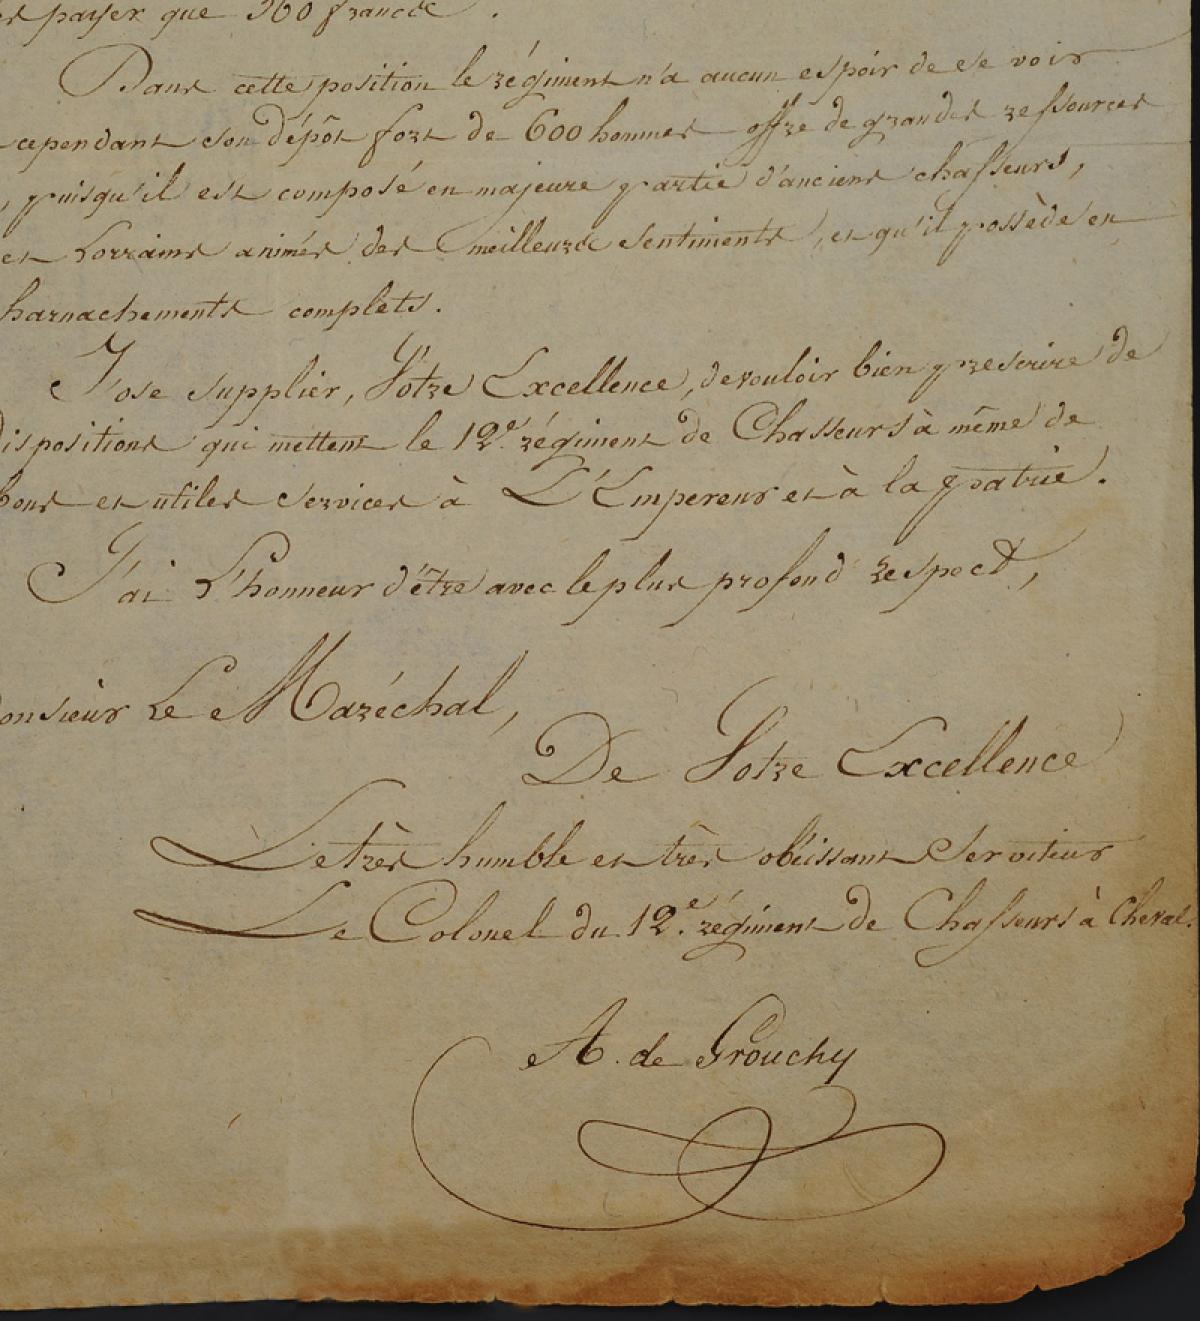 payer que 360 francs.
Dans cette position le régiment n'a aucun espoir de se voir
cependant son dépôt fort de 600 hommes offre de grandes ressources
, puisqu'il est composé en majeure partie d'anciens chasseurs,
et Lorrains animés des meilleurs sentiments, et qu'il possède en
harnachements complets.
J'ose supplier, Votre Excellence, de vouloir bien prescrire de
dispositions qui mettent le 12e. régiment de Chasseurs à même de
bons et utiles services à L'Empereur et à la patrie.
J'ai L'honneur d'être avec le plus profond respect,
onsieur Le Maréchal,
De Votre Excellence
Le très humble et très obéissant Serviteur
Le Colonel du 12e. régiment de Chasseurs à Cheval.
A. de Grouchy